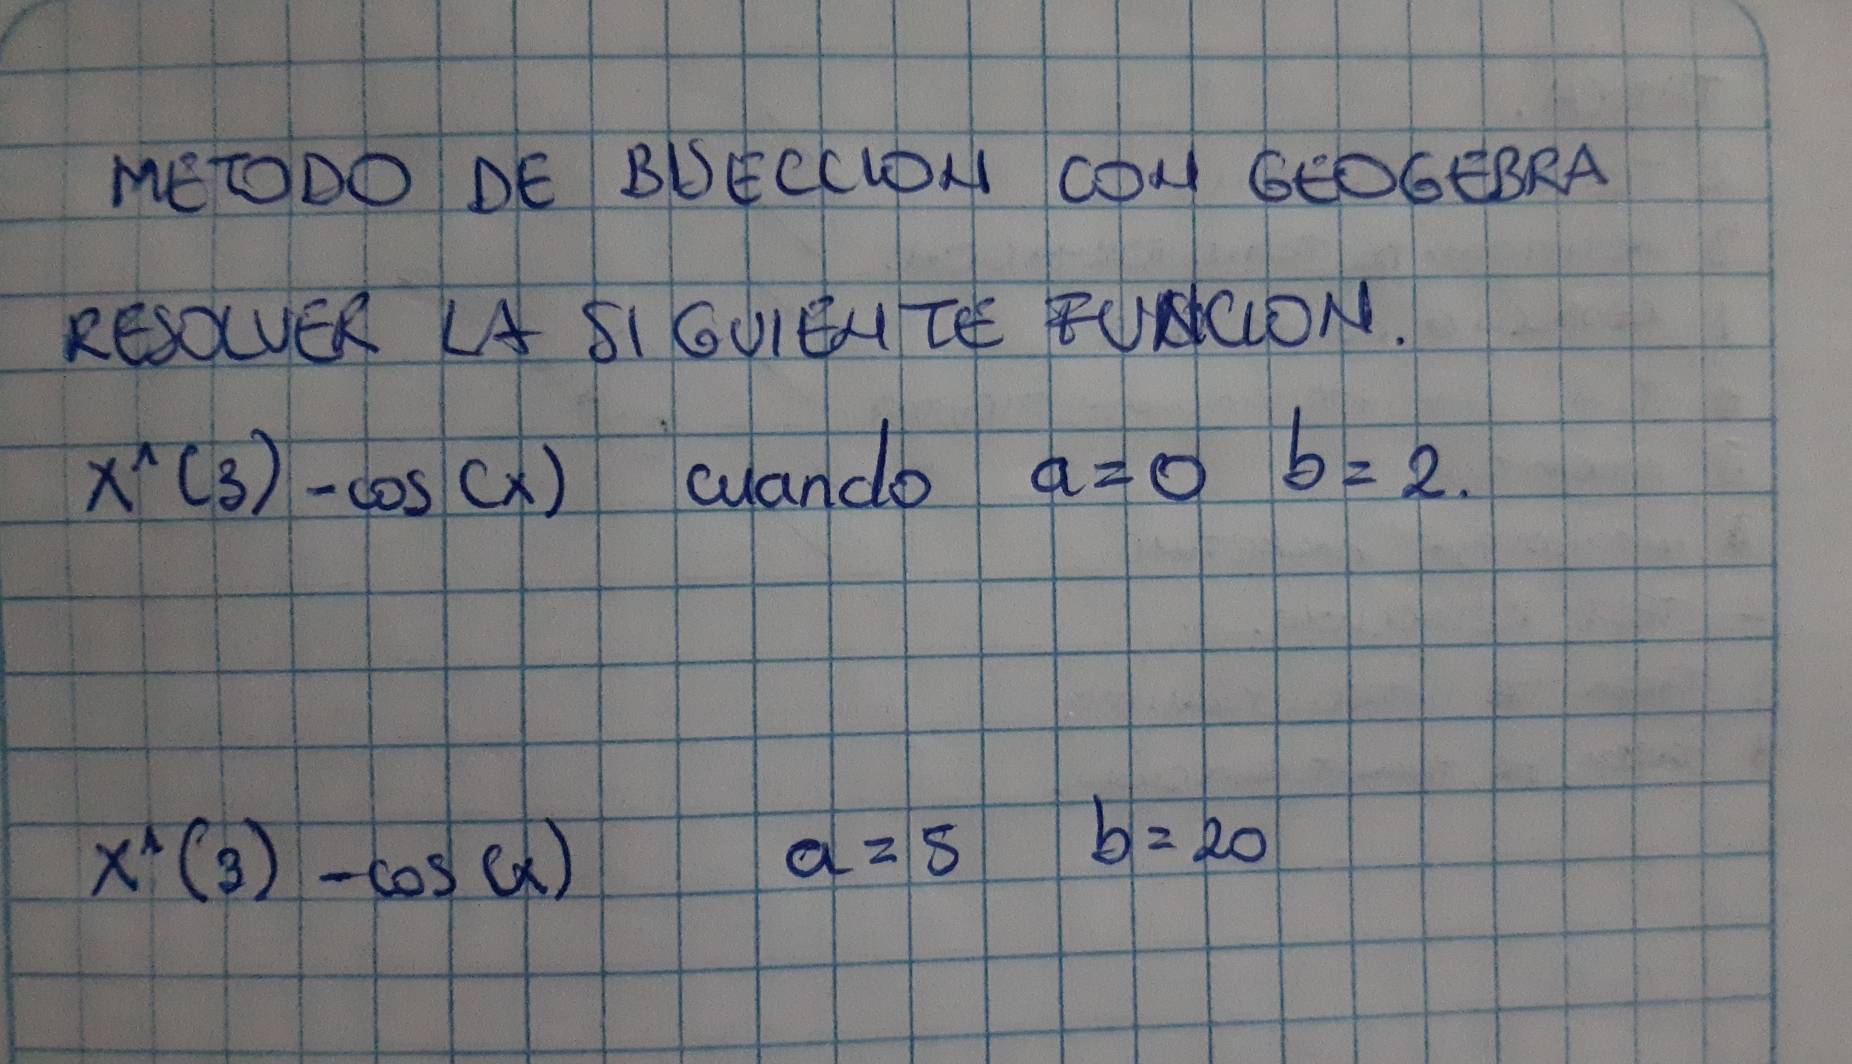 METODO DE BISECCION CON GEOGEBRA
RESOLVER LA SIGUIENTE FUNCION.
X^(3) -cos(x) cuando a=0 b=2.
X^(3) -cos(x) a=5 b=20